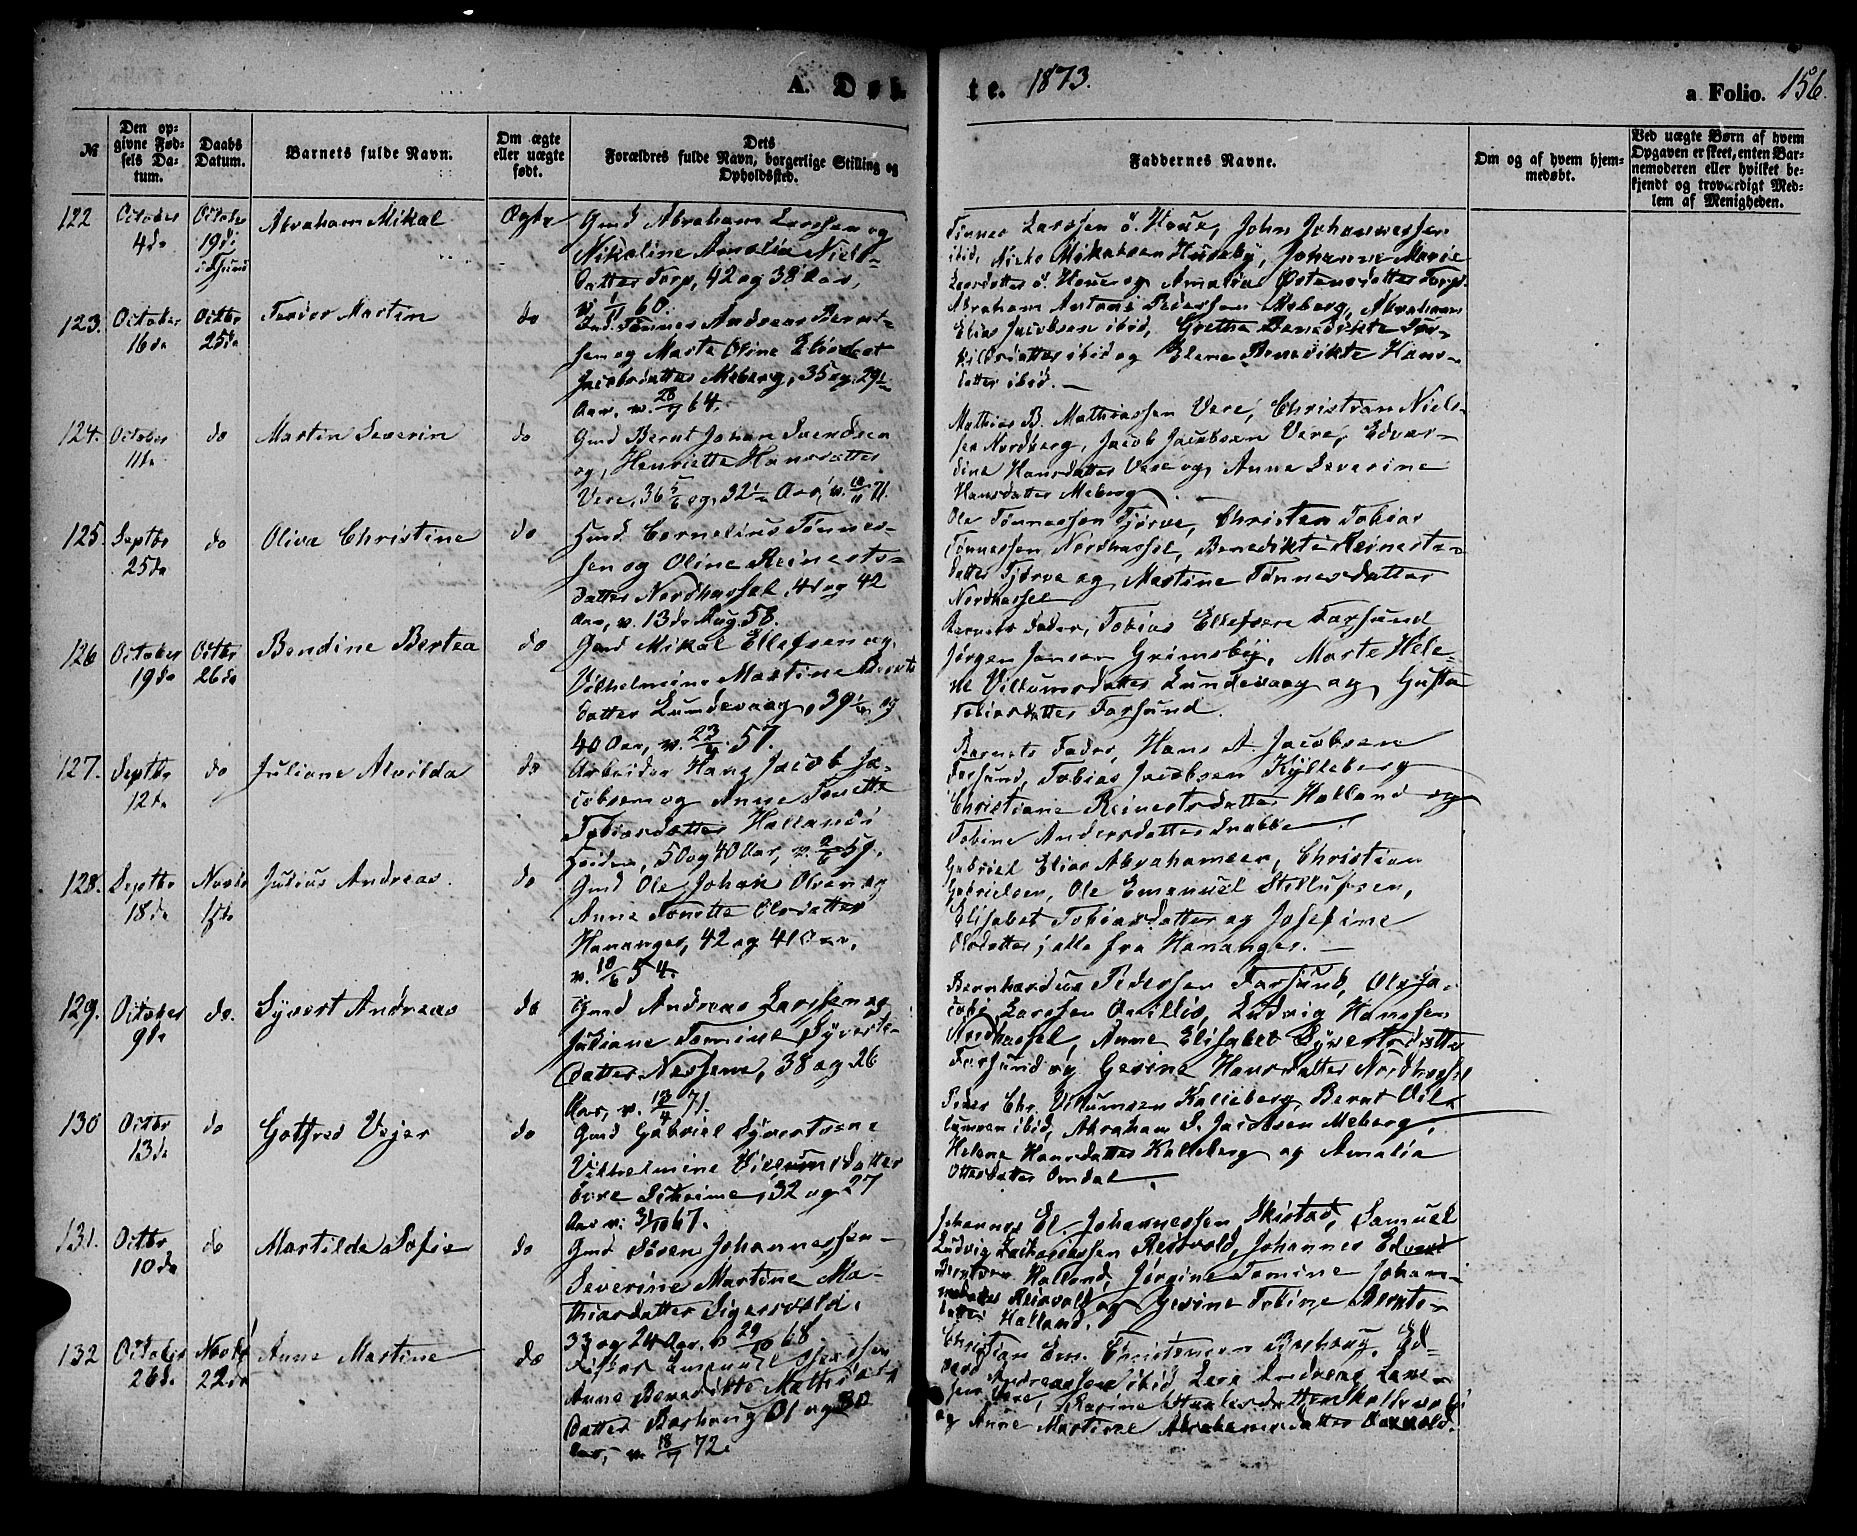 A. Døb
te. 1873.
a Folio. 156.
№
Den op-
givne Fød-
sels Da-
tum.
Daabs
Datum.
Barnets fulde Navn.
Om ægte
eller uægte
født.
Dets
Forældres fulde Navn, borgerlige Stilling og
Opholdssted.
Faddernes Navne.
Om og af hvem hjem-
medøbt.
Ved uægte Børn af hvem
Opgaven er skeet, enten Bar-
nemoderen eller hvilket be-
kjendt og troværdigt Med-
lem af Menigheden.
122
October
4de
October
19de
Abraham Mikal
Ægte
Gmd Abraham Larssen og
Nikoline Amalia Niels-
datter Torp, 42 og 38 Aar,
Tønnes Larssen ö. Houe, John Johannessen
ibid, Niels Mikalsen Huseby, Johanne Marie
Larsdatter ö. Houe og Amalia Østensdatter Torp.
123.
October
16de
Octbr
25de
Martin
do
Tønnes Andreas Bernt-
sen og Marte Oline
Jacobsdatter Meberg, 35 og 29½
Aar, v. 64.
Abraham Antoni Pedersen Meberg, Abraham
Elias Jacobsen ibid, Grethe Benedikte
ibid og Elene Benedikte Hans-
datter ibid.
124.
October
11te
do
Martin Severin
do
Gmd Bernt Johan Svendsen
og Henriette Hansdatter
Vere, 36 og 32½ Aar, v. 71.
Mathias B. Mathiassen Vere, Christian Niels-
sen Nordberg, Jacob Jacobsen Vere, Edvar-
dine Hansdatter Vere og Anne Severine
Hansdatter Meberg
125.
Septbr
25de
do
Oliva Christine
do
Hmd Cornelius Tønnes-
sen og Oline Reinerts-
datter Nordhassel, 41 og 42
Aar, v. 13de Aug. 58.
Ole Tønnessen Tjørve, Christen Tobias
Tønnessen Nordhassel, Benedikte Reinerts-
datter Tjørve og Martine Tønnesdatter
Nordhassel
126
October
19de
Octbr
26de
Bendine Bertea
do
Gmd Mikal Ellefsen og
Vilhelmine Martine Bernts
datter Lundevaag, 39½ og
40 Aar, v. 57.
Barnets Fader, Tobias Ellefsen Farsund
Jørgen Jansen Grimsby, Marte Hele-
ne Villumsdatter Lundevaag og Gusta
Tobiasdatter Farsund.
127.
Septbr
12te
do
Juliane Alvilda
do
Arbeider Hans Jacob Ja-
cobsen og Anne Tonette
Tobiasdatter Halland i
50 og 40 Aar, v. 59.
Barnets Fader, Hans A. Jacobsen
Farsund, Tobias Jacobsen Kylleberg
Christiane Reinertsdatter Halland og
Tobine Andersdatter
128.
Septbr
18de
Novbr
Julius Andreas.
do
Gmd Ole Johan Olsen og
Anne Tonette Olsdatter
Hananger, 42 og 41 Aar,
v. 54.
Gabriel Elias Abrahamsen, Christian
Gabrielsen, Ole Emanuel Stillufsen,
Elisabet Tobiasdatter og Josefine
Olsdatter, alle fra Hananger.
129.
October
9de
do.
Syvert Andreas
do
Gmd Andreas Larssen og
Juliane Tomine Syverts-
datter 38 og 26
Aar, v. 71.
Bernhardus Pedersen Farsund, Ole Ja-
cob Larssen Ludvig Hanssen
Nordhassel, Anne Elisabet Syvertsdatter
Farsund og Gesine Hansdatter Nordhassel
130
Octbr
13de
do
Gotfred Vejer
do
Gmd Gabriel Syvertsen
Vilhelmine Villumsdatter
32 og 27
Aar v. 67.
Peder Chr. Villumsen Kalleberg, Bernt Vil-
lumsen ibid, Abraham S. Jacobsen Meberg,
Helene Hansdatter Kalleberg og Amalia
Ottesdatter Omdal.
131.
Octbr
10de
do
Martilde Sofie
do
Gmd Søren Johannessen
Severine Martine Ma-
thiasdatter Sigersvold.
33 og 24 Aar, v. 68
Johannes El. Johannessen Skistad, Samuel
Ludvig Zachariassen Johannes Edvard
Berntsen Halland, Jørgine Tomine Johan-
og Gesine Tobine Bernts-
datter Halland.
132
October
26de
Novbr
22de
Anne Martine
do
Fisker Emanuel
Anne Benedikte Mathias
datter Borhaug 31 og 30
Aar, v. 72.
Christian Em. Christensen Borhaug, Ed-
vard Andreassen ibid, Lars Andreas Lars-
sen Vere,
og Anne Martine Abrahamsdatter